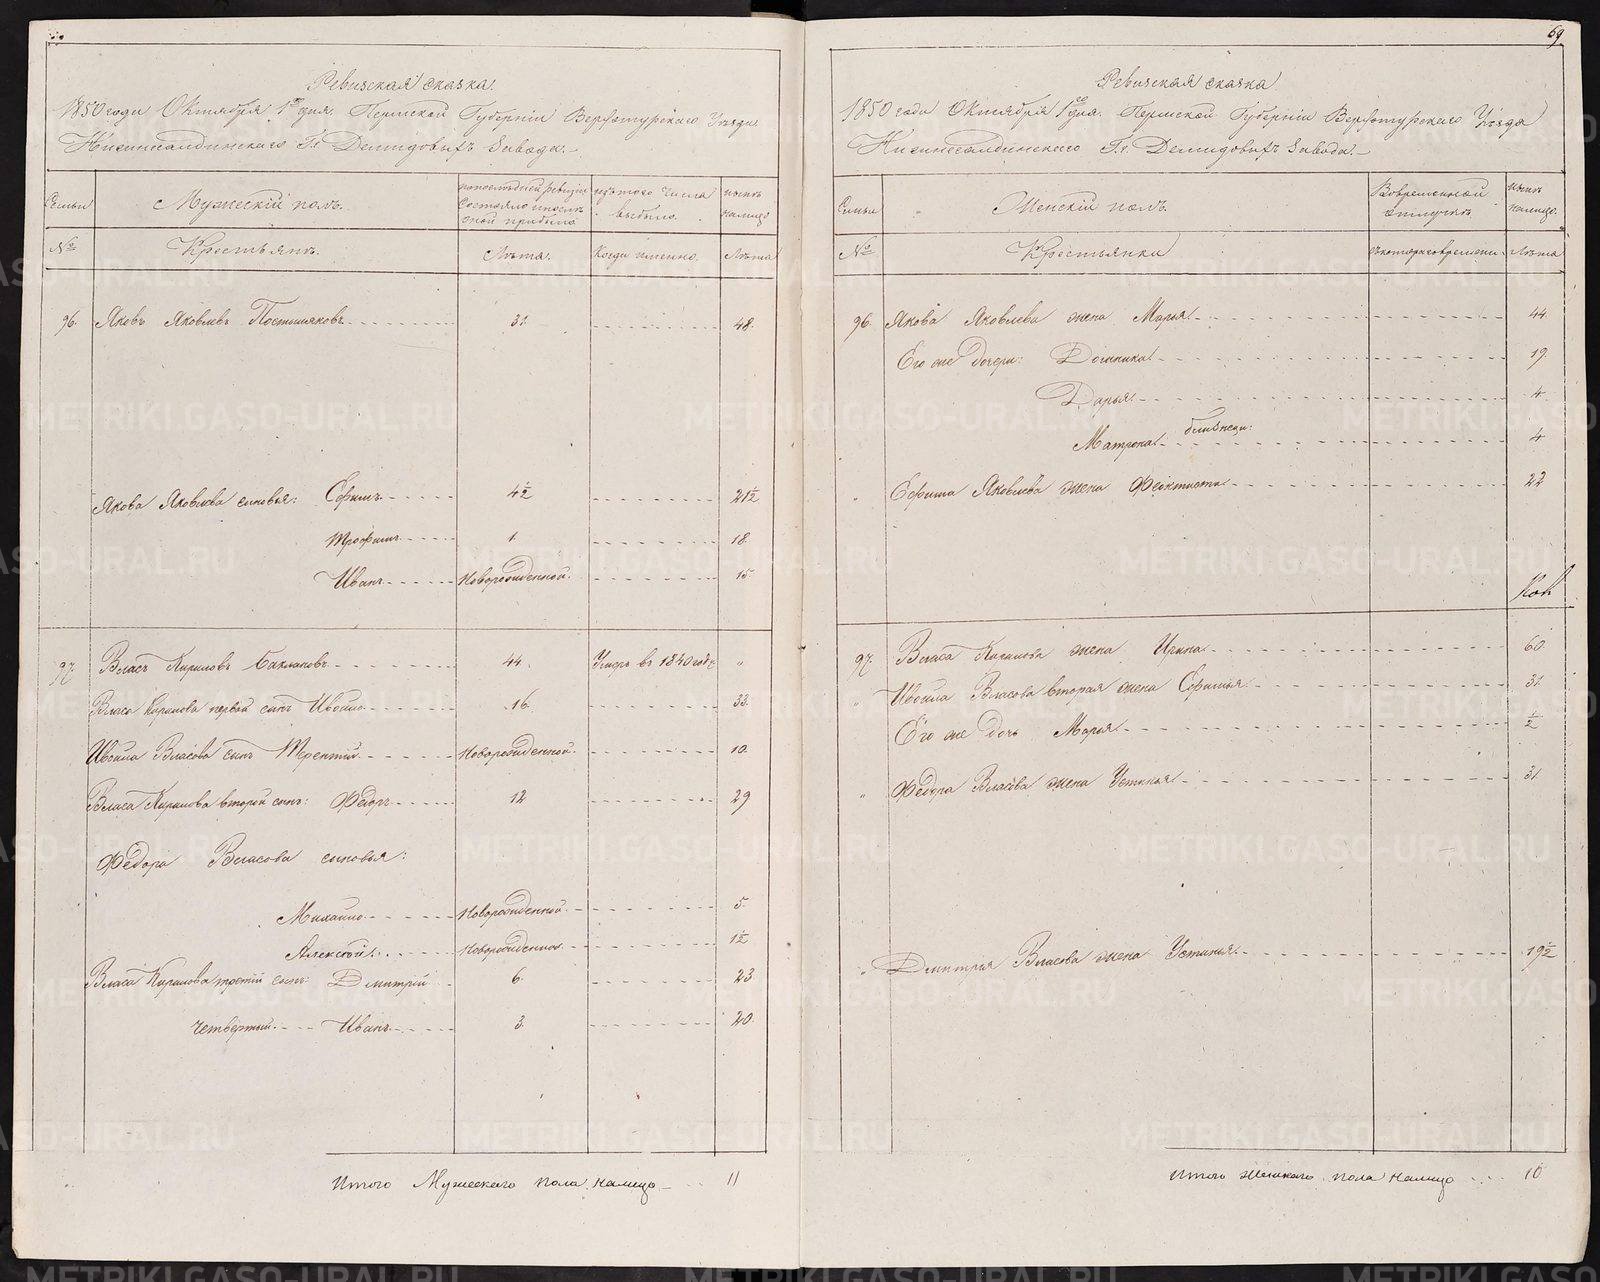 Ревизская сказка.
1850 года Октября 1го дня. Пермской Губерніи Верхотурскаго Уѣзда
Нижнесалдинскаго Гг. Демидовыхъ завода.
Семьи
Мужескій полъ.
по последней ревизіи состояло и после оной прибыло
изъ того числа выбыло.
ныне на лицо
№
Крестьянъ.
Лѣта.
Когда именно.
Лѣта
96. Яковъ Яковлевъ Постыляковъ 31. 48.
Якова Яковлева сыновья: Ефимъ 4½ 21½
Трофимъ 1. 18.
Иванъ Новорожденной. 15
97. Власъ Кириловъ Баклановъ 44. Умеръ въ 1840 году "
Власа Кирилова первой сынъ Ивойло 16. 33.
Ивойла Власова сынъ Терентій Новорожденной. 10.
Власа Кирилова второй сынъ: Федоръ 12 29
Федора Власова сыновья:
Михайло Новорожденной. 5.
Алексѣй Новорожденной 1½
Власа Кирилова третій сынъ: Дмитрій 6. 23
четвертый. Иванъ 3. 20.
Итого Мужескаго пола налицо 11
69
Ревизская сказка
1850 года Октября 1го дня. Пермской Губерніи Верхотурскаго Уѣзда
Нижнесалдинскаго Гг. Демидовыхъ завода.
Семьи
Женскій полъ.
Во временной отлучкѣ.
ныне на лицо.
№
Крестьянки
съ котораго времени.
Лѣта
96. Якова Яковлева жена Марья 44.
Его же дочери: Домника 19.
Дарья 4.
близнецы:
Матрена 4
" Ефима Яковлева жена Феоктиста 22
97. Власа Кирилова жена Ирина 60.
" Ивойла Власова вторая жена Ефимья 31.
Его же дочь Марья ½
" Федора Власова жена Устинья 31.
" Дмитрія Власова жена Устинья 19½
Итого женскаго пола налицо 10
METRIKI.GASO-URAL.RU